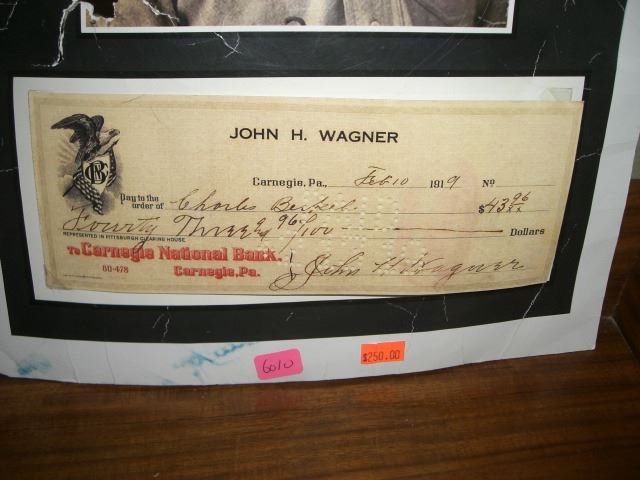 JOHN H. WAGNER
Carnegie, Pa., Feb 10 1919 No
Pay to the order of Charles $43 96/xx
Fourty Three & 96/100 Dollars
REPRESENTED IN PITTSBURGH CLEARING HOUSE
To Carnegie National Bank.
60-478 Carnegie, Pa.
John H Wagner
6010
$250.00